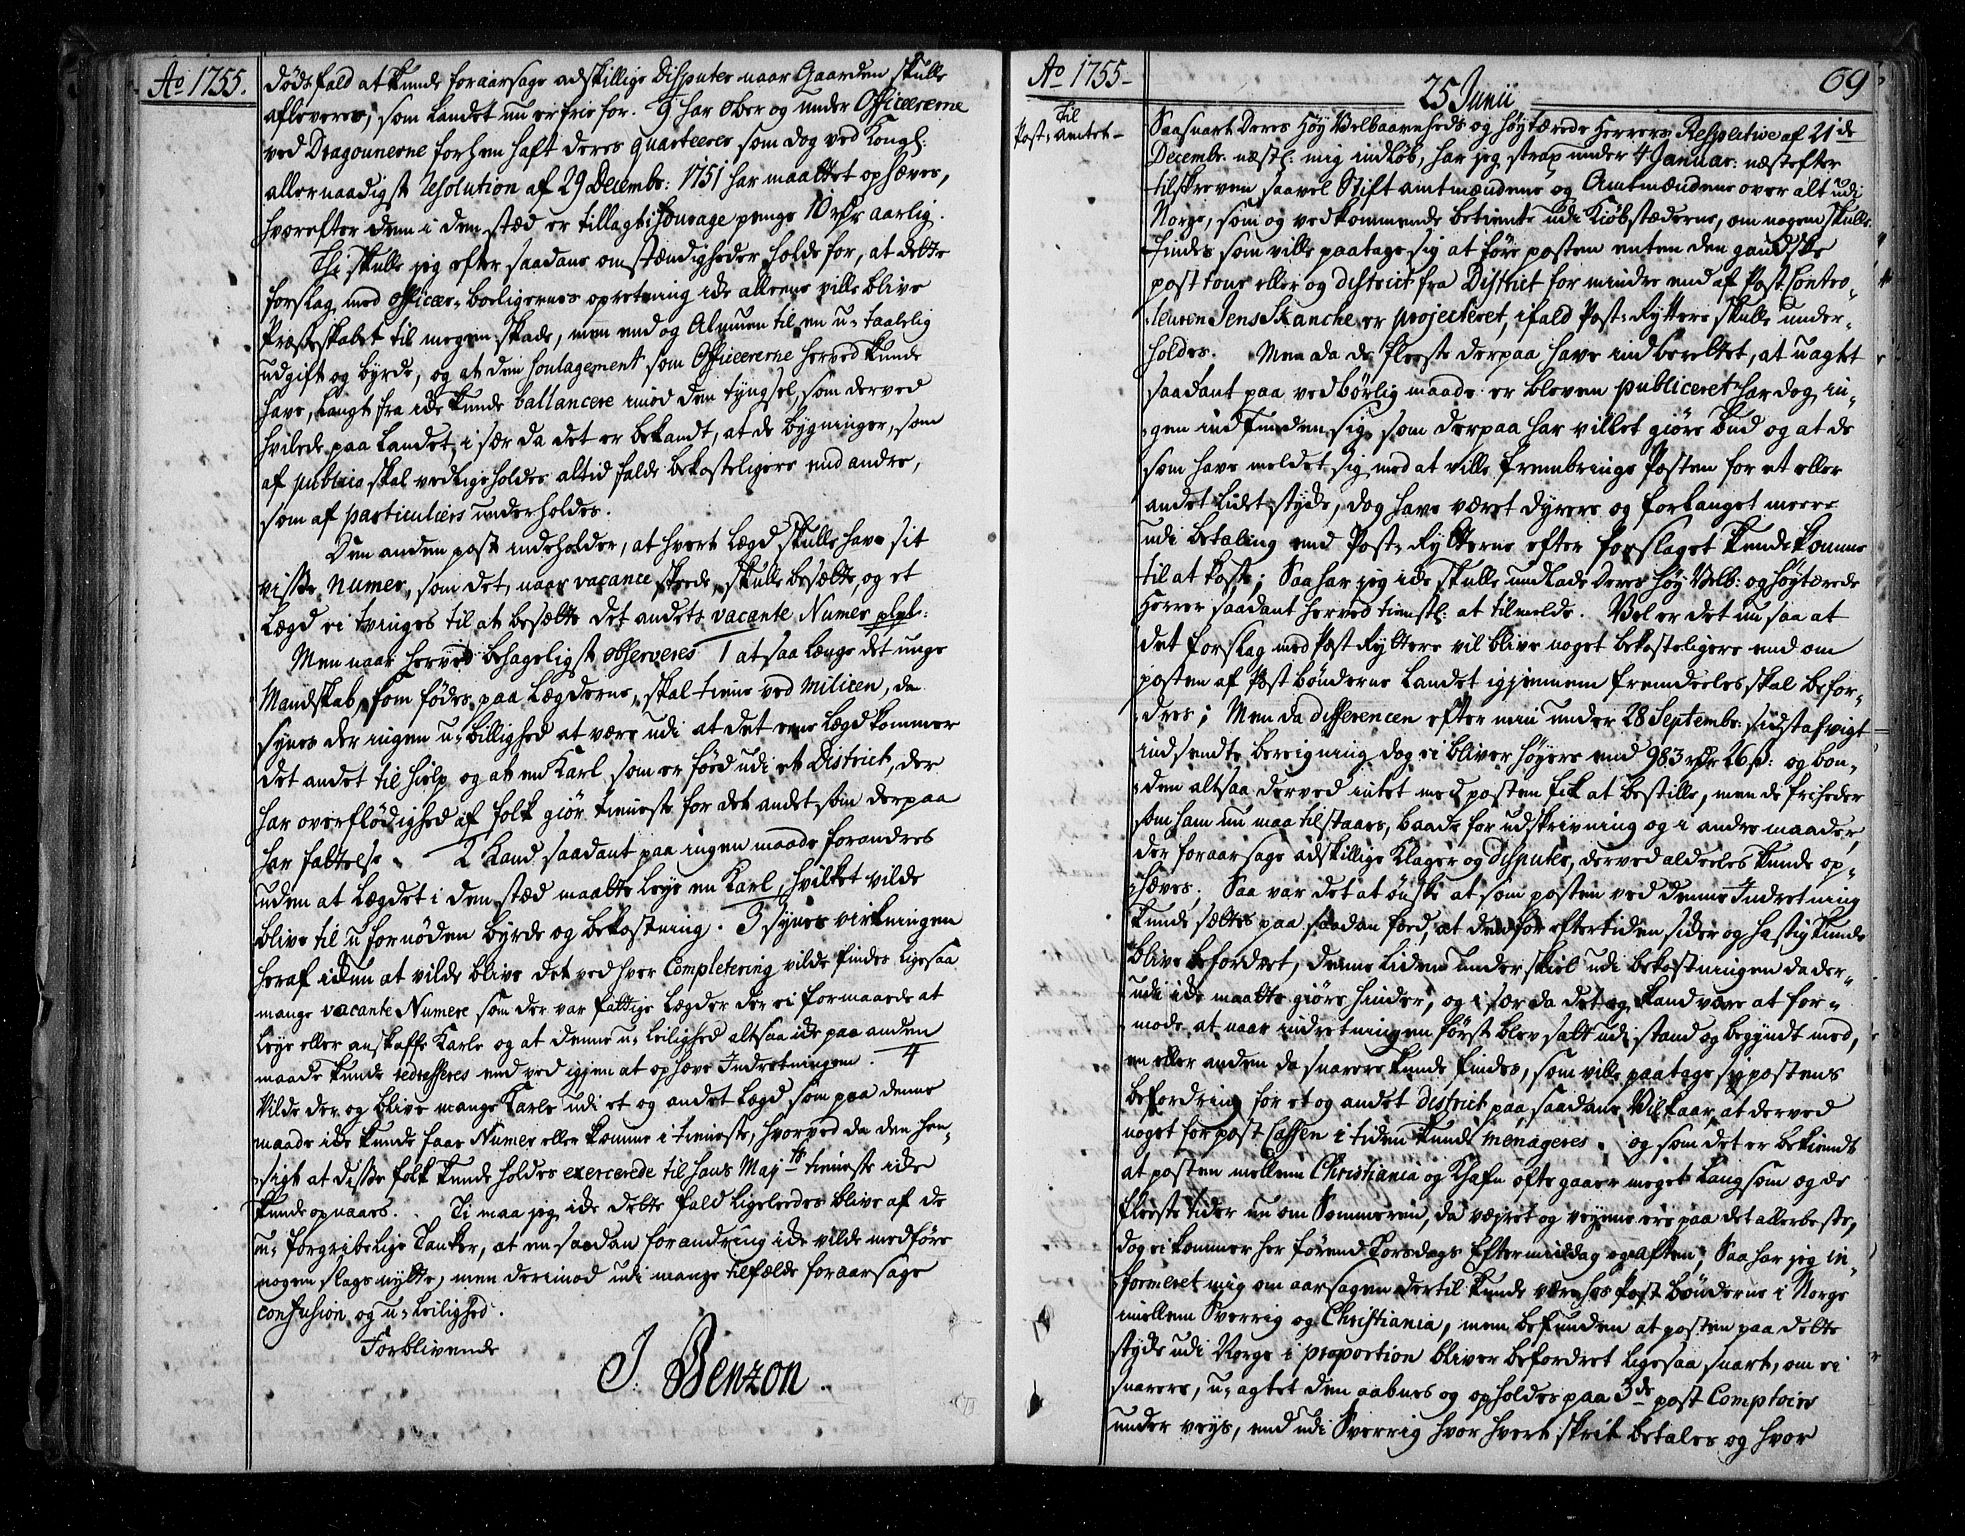 Ao 1755.
dødsfald at kunde foraarsage adskillige Disputer naar Gaarden skulle
afleveres, som Landet nu er frie for. 9 har ober og under Officererne
ved Dragounerne forhen haft deres quarteerer som dog ved Kongl:
allernaadigst resolution af 29 Decembr: 1751 har maattet ophæves,
hvorefter dem i den stæd er tillagt i fourage penge 10 rdr aarlig.
Thi skulle jeg efter saadane omstændigheder holde for, at dette
forslag med officeer-boeligernes opretning icke alleene ville blive
til megen skade, men end og Almuen til en u-taalelig
udgift og byrde, og at den Soulagement som Officererne herved kunde
have, langt fra icke kunde ballancere imod den tyngsel, som derved
hvilede paa Landet, i sær da det er bekandt, at de bygninger, som
af publico skal vedligeholdes altid falde bekosteligere end andre,
som af particuliers underholdes.
Den anden post indeholder, at hvert Lægd skulle have sit
visse Numer, som det, naar vacance skede, skulle besætte, og et
Lægd ei tvinges til at besætte det andets vacante Numer plpl:
Men naar herved behageligst observeres 1 at saa længe det unge
Mandskab, som fødes paa Lægderne, skal tiene ved Milicen, da
synes der ingen u-billighed at være udi at det eene Lægd kommer
det andet til hielp og at en Karl som er født udi et District, der
har overflødighed af folk giør tieneste for det andet som derpaa
har fattelse. 2 Kand saadant paa ingen maade forandres
uden at Lægdet i den stæd maatte leye en Karl, hvilket vilde
blive til ufornøden byrde og bekostning. 3 synes virkningen
heraf ickun at vilde blive det ved hver Completering vilde findes ligesaa
mange vacante Numere som der var fattige Lægder der ei formaaede at
leye eller anskaffe Karle og at denne u-leilighed altsaa icke paa anden
maade kunde redresseres end ved igjen at ophæve Indretningen 4
Vilde der og blive mange Karle udi et og andet Lægd som paa denne
maade icke kunde faae Numer eller komme i tieneste, hvorved da den hen-
sigt at disse folk kunde holdes exercerede til hans Majts tieneste icke
kunde opnaaes. Ti maa jeg icke dette fald ligeleedes blive af de
u-forgribelige Tanker, at en saadan forandring icke vilde medføre
nogen slags nytte, men derimod udi mange tilfælde foraarsage
confusion og u-leilighed.
Forblivende
J. Benzon.
Ao 1755-
25 Junii
69
Til
Post-amtet-
Saasnart Deres Høy Velbaarenheds og høytærede Herrers Respective af 21de
Decembr. næstl: mig indløb, har jeg strax under 4 Januar: næstefter
tilskreven saavel Stiftamtmændene og Amtmændene over alt udi
Norge, som og vedkommende betiente udi Kiøbstæderne, om nogen skulle
findes som ville paatage sig at føre posten enten den gandske
post tour eller og district fra District for mindre end af Post Contro-
leuren Jens Skanche er projecteret, ifald Post-Ryttere skulle under-
holdes. Men da de fleeste derpaa have indberettet, at uagtet
saadant paa vedbørlig maade er bleven publiceret har dog in-
gen indfunden sig, som derpaa har villet giøre bud og at de
som have meldet sig med at ville frembringe Posten for et eller
andet lidet stycke, dog have været dyrere og forlanget meere
udi betaling end Post-Rytterne efter forslaget kunde komme
til at koste; Saa har jeg icke skulle undlade Deres høy Velb: og høytærede
Herrer saadant herved tienstl: at tilmelde. Vel er det nu saa at
det forslag med Post Ryttere vil blive noget bekosteligere end om
posten af Postbønderne Landet igjennem fremdeeles skal befor-
dres; Men da differencen efter min under 28 Septembr: sidstafvigt
indsendte beregning dog ei bliver høyere end 983 rdr 26 s: og bon-
den altsaa derved intet med posten fik at bestille, men de friheder
som ham nu maa tilstaaes, baade for udskrivning og i andre maader,
der foraarsage adskillige Klager og disputer, derved aldeeles kunde op-
hæves; Saa var det at ønske at som posten ved denne Indretning
kunde sættes paa saadan foed, at den for eftertiden sicker og hastig kunde
blive befordret, denne liden underskiel udi bekostningen da der-
udi icke maatte giøre hinder, og i sær da det og kand være at for-
mode at naar indretningen først blev satt udi stand og begyndt med,
en eller anden da snarere kunde findes, som ville paatage sig postens
befordring for et og andet district paa saadane Vilkaar, at derved
noget for post Cassen i tiden kunde menageres. og som det er bekiendt
at posten mellem Christiania og Khafn ofte gaaer meget langsom og de
fleeste tider nu om Sommeren, da vejret og veyene ere paa det allerbeste,
dog ei kommer her førend Torsdags Eftermiddag og Aften; Saa har jeg in-
formeret mig om aarsagen dertil kunde være hos Post bønderne i Norge
imellem Sverrig og Christiania, men befunden at posten paa dette
stycke udi Norge i proportion bliver befordret ligesaa snart, om ei
snarere, u-agtet den aabnes og opholdes paa 3de post Comptoirs
under veys, end udi Sverrig hvor hvert skrit betales og hvor